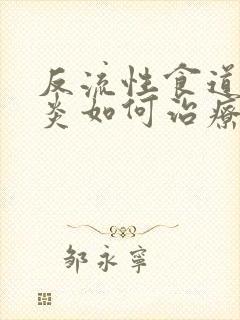 反流性食道
炎如何治療
邹永寧